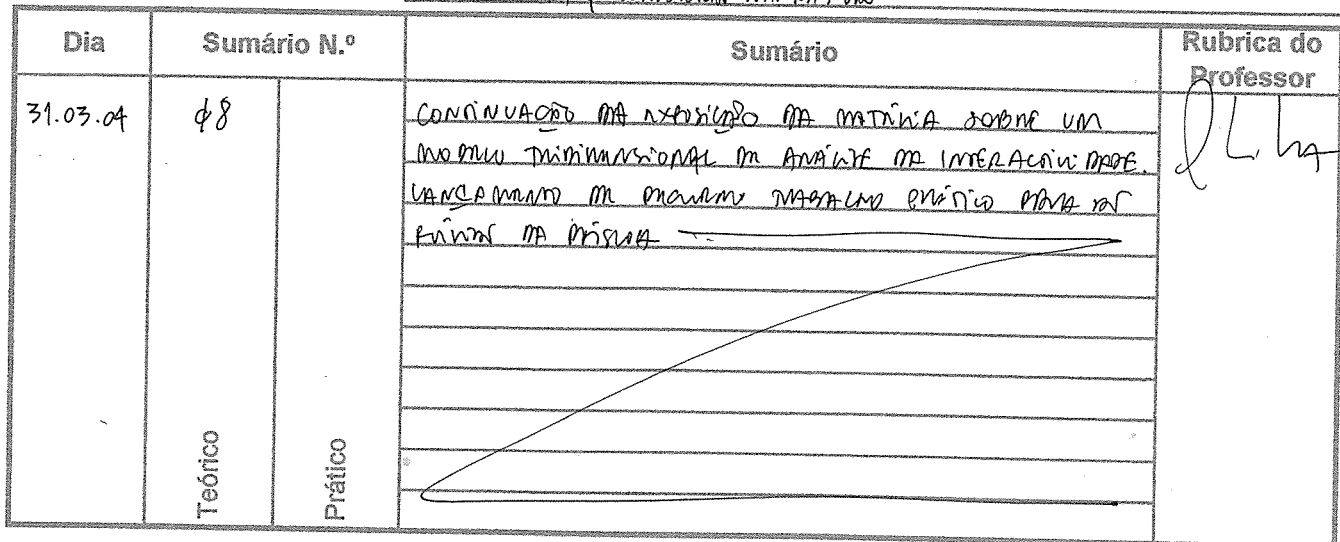 Dia Sumário N.º Sumário Rubrica do Professor
31.03.04 08 CONTINUAÇÃO DA EXPOSIÇÃO DA MATÉRIA SOBRE UM
MODELO TRIDIMENSIONAL DE ANÁLISE DA INTERACTIVIDADE.
LANÇAMENTO DE PEQUENO TRABALHO PRÁTICO PARA AS
FÉRIAS DA PÁSCOA
Teórico Prático